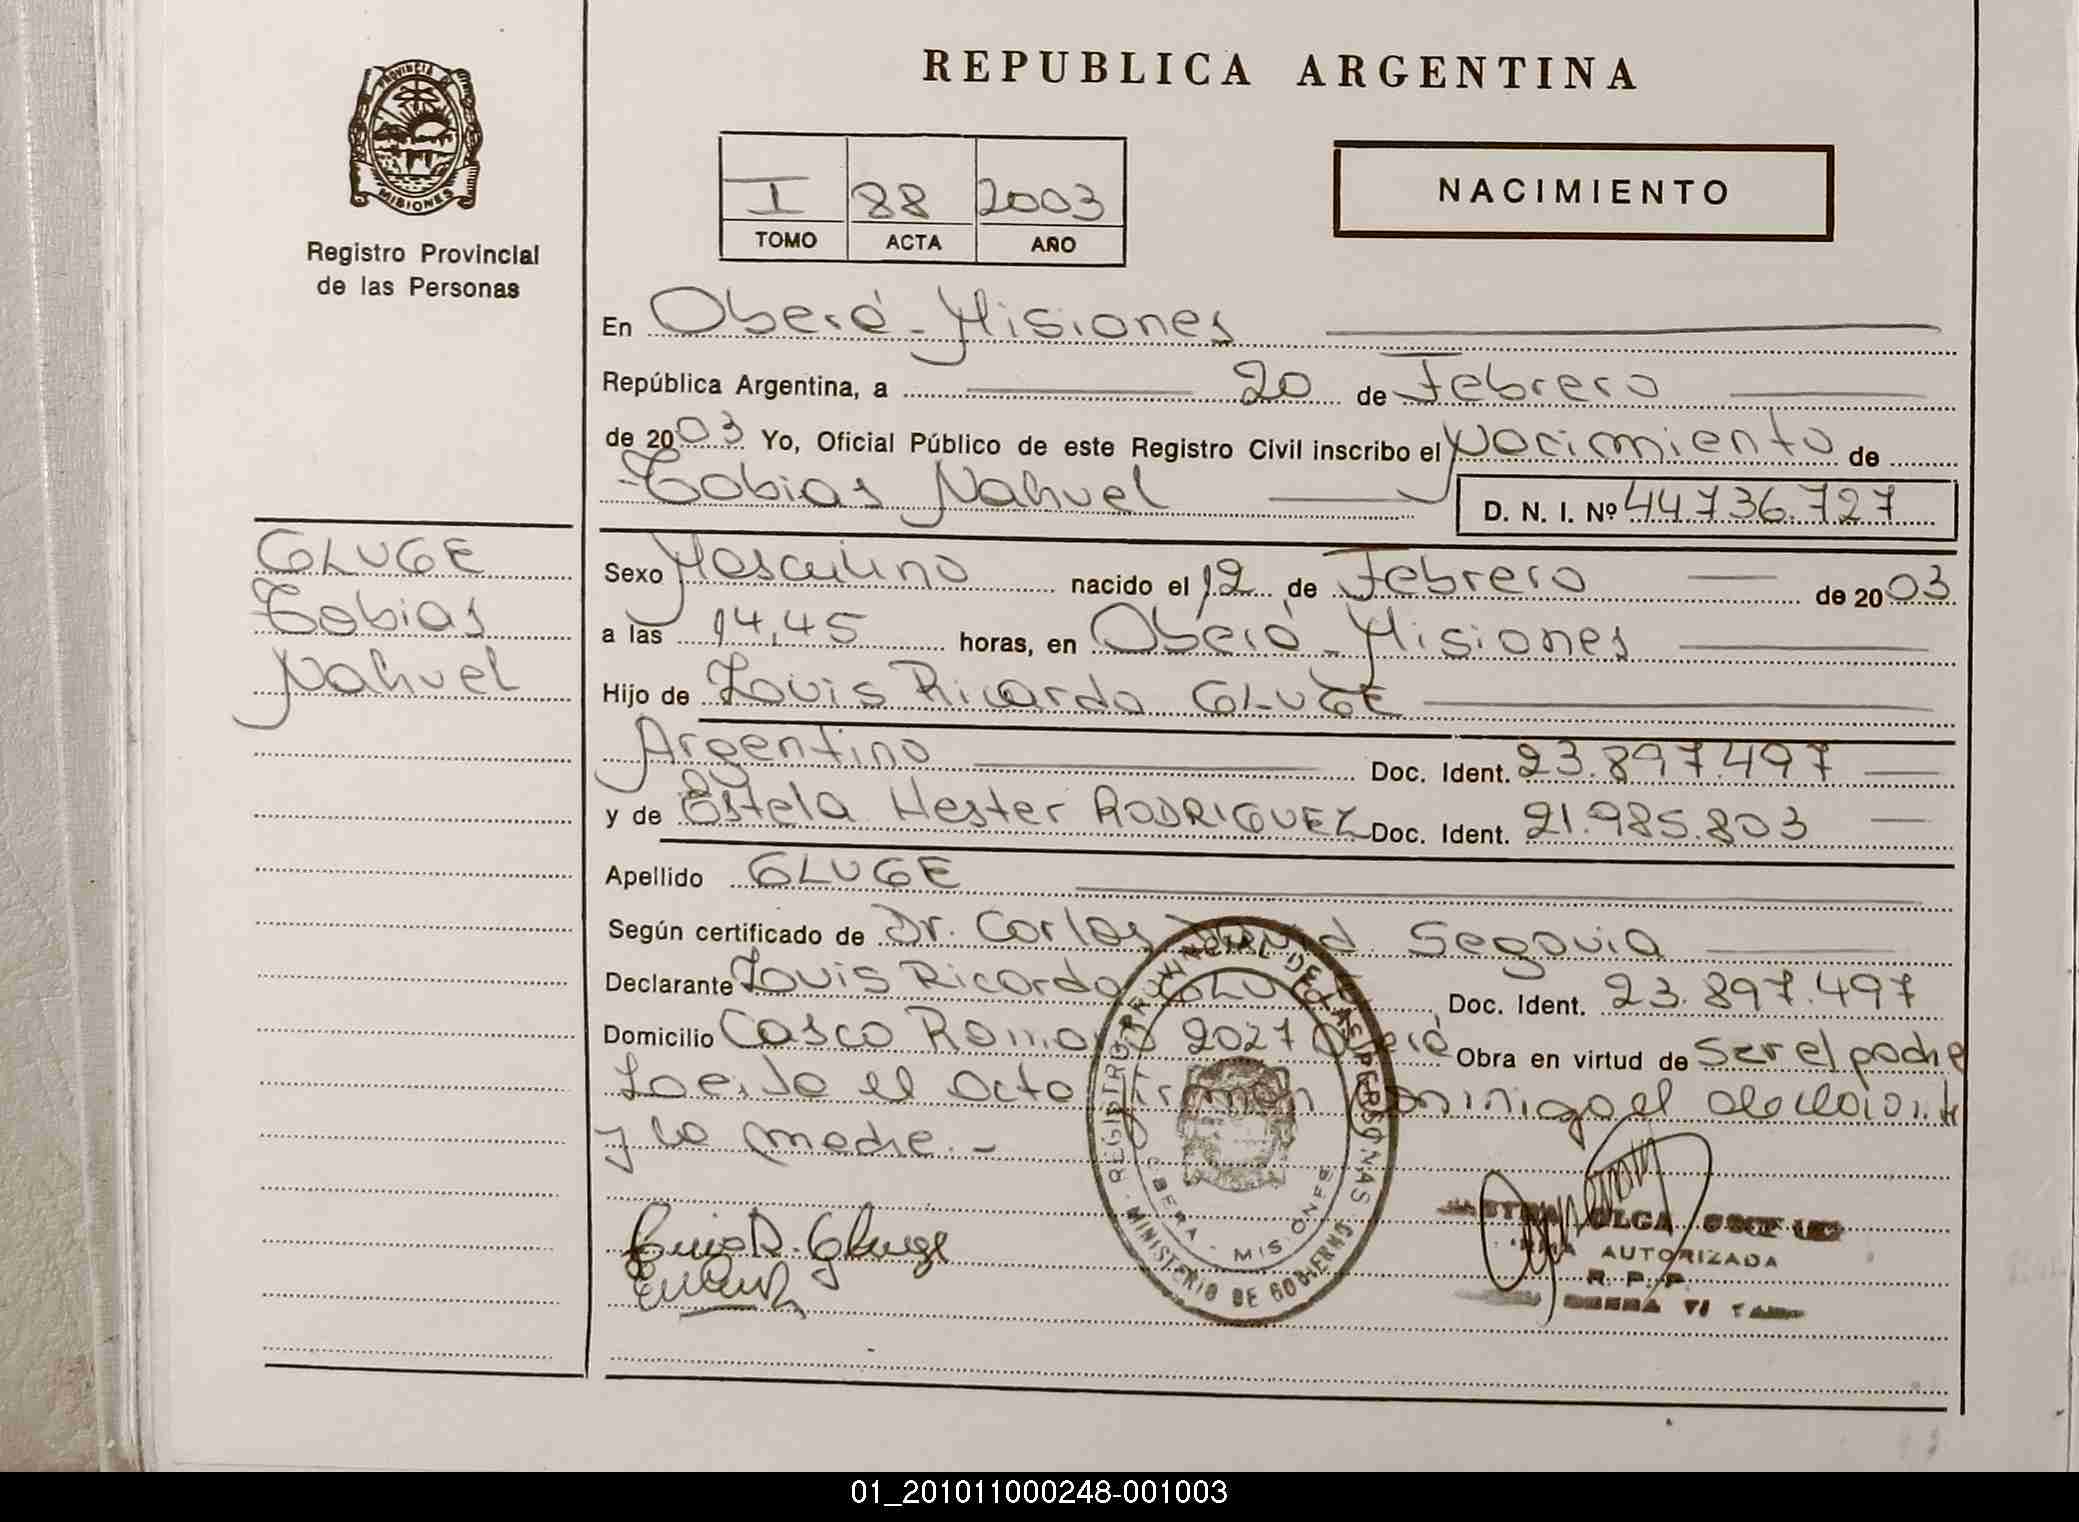 PROVINCIA DE
MISIONES
Registro Provincial
de las Personas
REPUBLICA ARGENTINA
I 88 2003
TOMO ACTA AÑO
NACIMIENTO
En Oberá - Misiones
República Argentina, a 20 de Febrero
de 2003 Yo, Oficial Público de este Registro Civil inscribo el Nacimiento de
Tobias Nahuel
D. N. I. Nº 44.736.727
GLUGE
Tobias
Nahuel
Sexo Masculino nacido el 12 de Febrero de 2003
a las 14,45 horas, en Oberá - Misiones
Hijo de Louis Ricardo GLUGE
Argentino Doc. Ident. 23.897.497
y de Estela Hester RODRIGUEZ Doc. Ident. 21.985.803
Apellido GLUGE
Según certificado de Dr. Carlos David Segovia
Declarante Louis Ricardo GLUGE, Doc. Ident. 23.897.497
Domicilio Casco Romano 2027 Oberá Obra en virtud de ser el padre
Leida el acta firman conmigo el declarante
y la madre. -
REGISTRO PROVINCIAL DE LAS PERSONAS
OBERA - MISIONES
MINISTERIO DE GOBIERNO
Luis R. Gluge
OLGA
FIRMA AUTORIZADA
R. P. P.
01_201011000248-001003